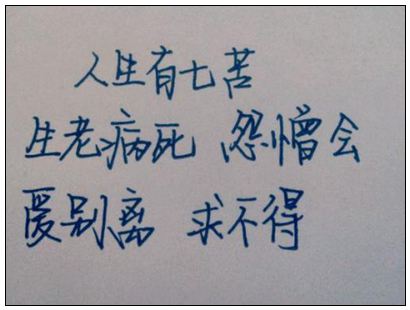 人生有七苦
生老病死 怨憎会
爱别离 求不得